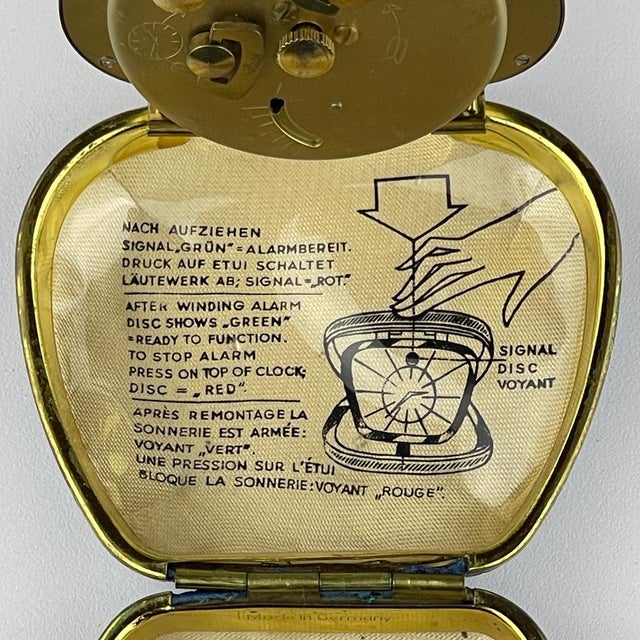 NACH AUFZIEHEN
SIGNAL „GRÜN" = ALARMBEREIT.
DRUCK AUF ETUI SCHALTET
LÄUTEWERK AB; SIGNAL = „ROT."
AFTER WINDING ALARM
DISC SHOWS „GREEN"
= READY TO FUNCTION.
TO STOP ALARM
PRESS ON TOP OF CLOCK;
DISC = „RED".
APRÈS REMONTAGE LA
SONNERIE EST ARMÉE:
VOYANT „VERT".
UNE PRESSION SUR L'ÉTUI
BLOQUE LA SONNERIE: VOYANT „ROUGE".
SIGNAL
DISC
VOYANT
Made in Germany